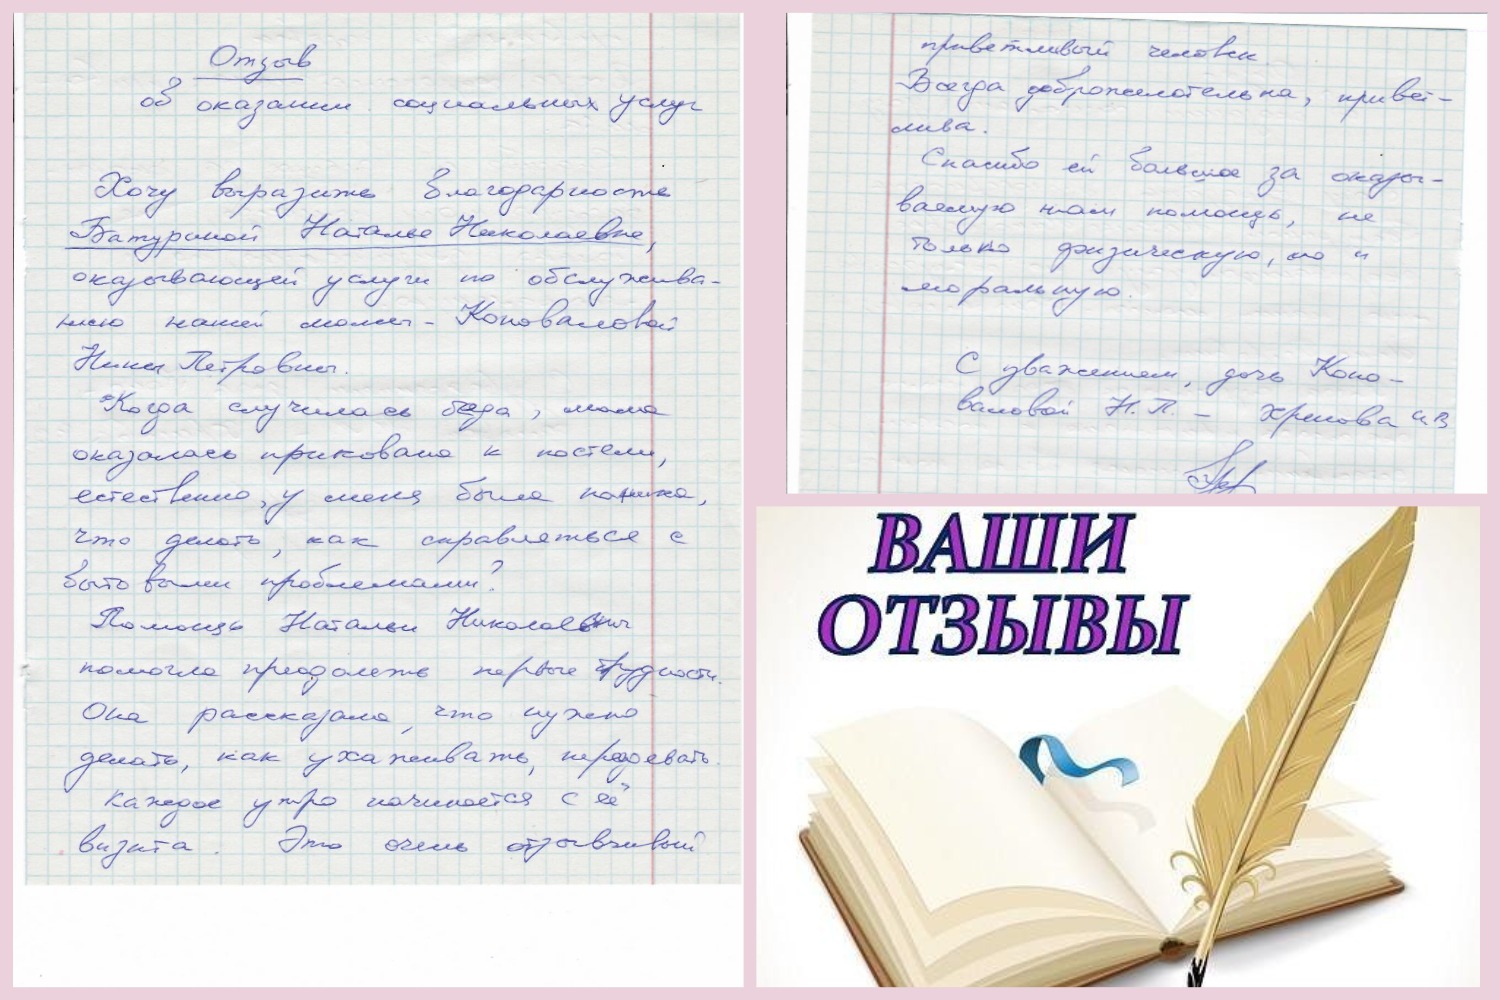 Отзыв
об оказании социальных услуг
Хочу выразить благодарность
Батуриной Наталье Николаевне,
оказывающей услуги по обслужива-
нию нашей мамы - Коноваловой
Нины Петровны.
Когда случилась беда, мама
оказалась прикована к постели,
естественно, у меня была паника,
что делать, как справляться с
бытовыми проблемами?
Помощь Натальи Николаевны
помогла преодолеть первые трудности.
Она рассказала, что нужно
делать, как ухаживать, переодевать.
Каждое утро начинается с её
визита. Это очень отзывчивый
приветливый человек.
Всегда доброжелательна, привет-
лива.
Спасибо ей большое за оказы-
ваемую нам помощь, не
только физическую, но и
моральную.
С уважением, дочь Коно-
валовой Н.П. -
ВАШИ
ОТЗЫВЫ